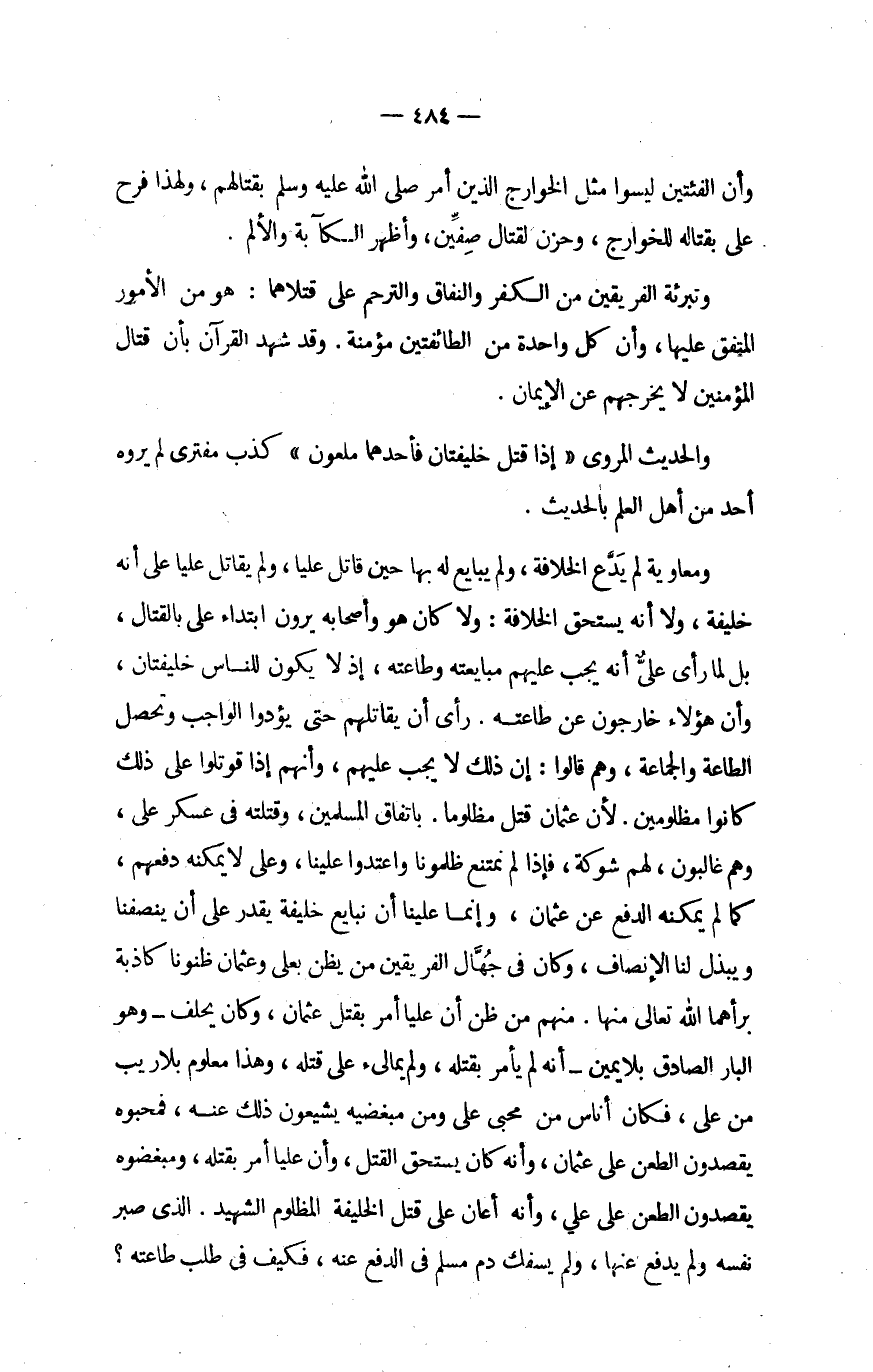 — ٤٨٤ —
وأن الفئتين ليسوا مثل الخوارج الذين أمر صلى الله عليه وسلم بقتالهم ، ولهذا فرح
على بقتاله للخوارج ، وحزن لقتال صِفِّين، وأظهر الكآبة والألم .
وتبرئة الفريقين من الكفر والنفاق والترحم على قتلاهما : هو من الأمور
المتفق عليها، وأن كل واحدة من الطائفتين مؤمنة . وقد شهد القرآن بأن قتال
المؤمنين لا يخرجهم عن الإيمان .
والحديث المروى « إذا قتل خليفتان فأحدهما ملعون » كذب مفترى لم يروه
أحد من أهل العلم بالحديث .
ومعاوية لم يَدَّع الخلافة ، ولم يبايع له بها حين قاتل عليا ، ولم يقاتل عليا على أنه
خليفة ، ولا أنه يستحق الخلافة : ولا كان هو وأصحابه يرون ابتداء على بالقتال ،
بل لما رأى علىٌّ أنه يجب عليهم مبايعته وطاعته ، إذ لا يكون للناس خليفتان ،
وأن هؤلاء خارجون عن طاعته . رأى أن يقاتلهم حتى يؤدوا الواجب وتحصل
الطاعة والجماعة ، وهم قالوا : إن ذلك لا يجب عليهم ، وأنهم إذا قوتلوا على ذلك
كانوا مظلومين . لأن عثمان قتل مظلوما . باتفاق المسلمين ، وقتلته فى عسكر على ،
وهم غالبون ، لهم شوكة ، فإذا لم نمتنع ظلمونا واعتدوا علينا ، وعلى لا يمكنه دفعهم ،
كما لم يمكنه الدفع عن عثمان ، وإنما علينا أن نبايع خليفة يقدر على أن ينصفنا
ويبذل لنا الإنصاف ، وكان فى جُهَّال الفريقين من يظن بعلى وعثمان ظنونا كاذبة
برأهما الله تعالى منها . منهم من ظن أن عليا أمر بقتل عثمان ، وكان يحلف ـ وهو
البار الصادق بلا يمين ـ أنه لم يأمر بقتله ، ولم يمالىء على قتله ، وهذا معلوم بلا ريب
من على ، فكان أناس من محبى على ومن مبغضيه يشيعون ذلك عنه ، فمحبوه
يقصدون الطعن على عثمان ، وأنه كان يستحق القتل ، وأن عليا أمر بقتله، ومبغضوه
يقصدون الطعن على علي ، وأنه أعان على قتل الخليفة المظلوم الشهيد . الذى صبر
نفسه ولم يدفع عنها ، ولم يسفك دم مسلم فى الدفع عنه ، فكيف فى طلب طاعته ؟